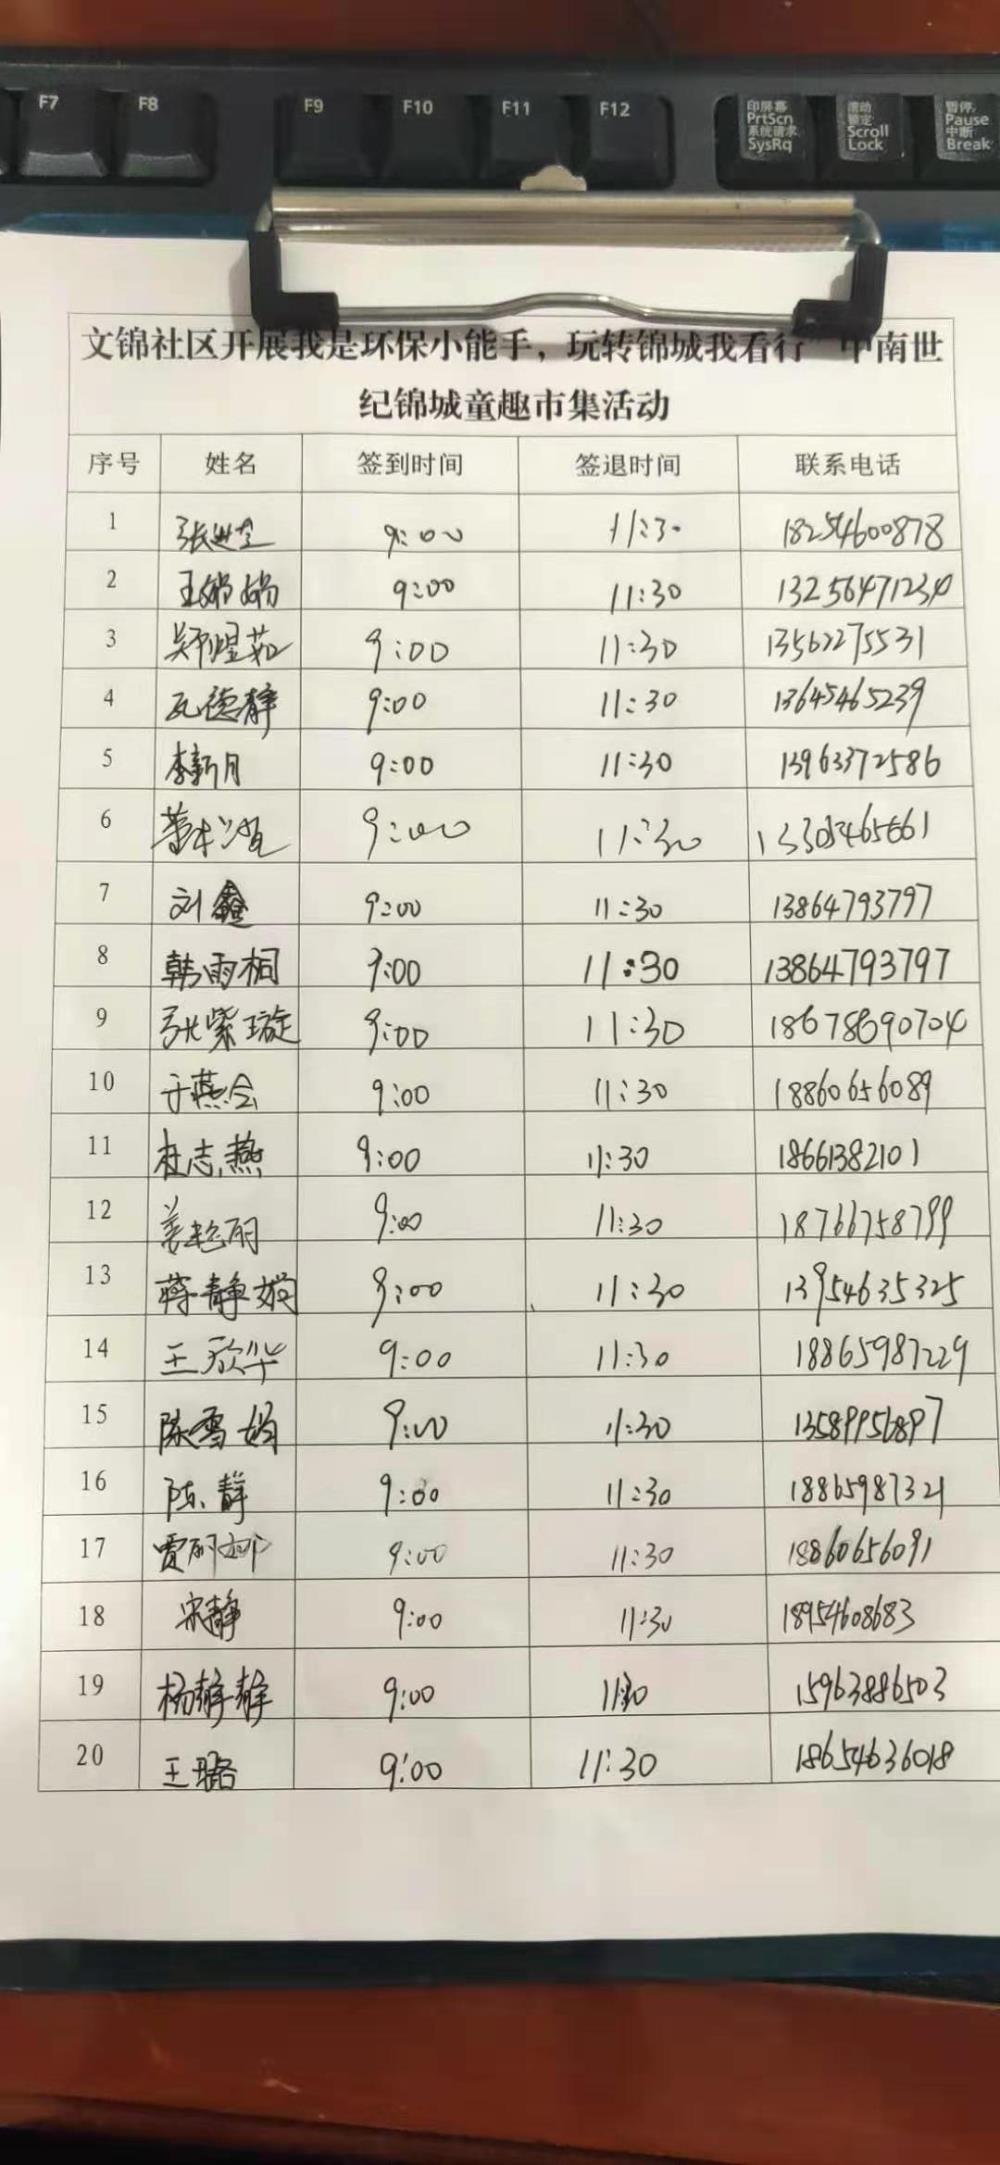 F7 F8 F9 F10 F11 F12
印屏幕 PrtScn 系统请求 SysRq
滚动 锁定 Scroll Lock
暂停 Pause 中断 Break
文锦社区开展我是环保小能手，玩转锦城我看行”中南世
纪锦城童趣市集活动
序号 姓名 签到时间 签退时间 联系电话
1 张 9:00 11:30 18254600878
2 王娟娟 9:00 11:30 13256471234
3 郑煜茹 9:00 11:30 13562275531
4 德静 9:00 11:30 13645465239
5 李新月 9:00 11:30 13963372586
6 9:00 11:30
7 刘鑫 9:00 11:30 13864793797
8 韩雨桐 9:00 11:30 13864793797
9 张紫璇 9:00 11:30 18678690704
10 于燕会 9:00 11:30 18860656089
11 杜志燕 9:00 11:30 18661382101
12 姜艳丽 9:00 11:30 18766758799
13 蒋静娴 9:00 11:30 13954635325
14 王欣华 9:00 11:30 18865987229
15 陈雪娟 9:00 11:30 13589956897
16 陈静 9:00 11:30 18865987321
17 贾丽娜 9:00 11:30 18860656091
18 宋静 9:00 11:30 18954608683
19 杨静静 9:00 11:30 15963886503
20 王璐 9:00 11:30 18654636018